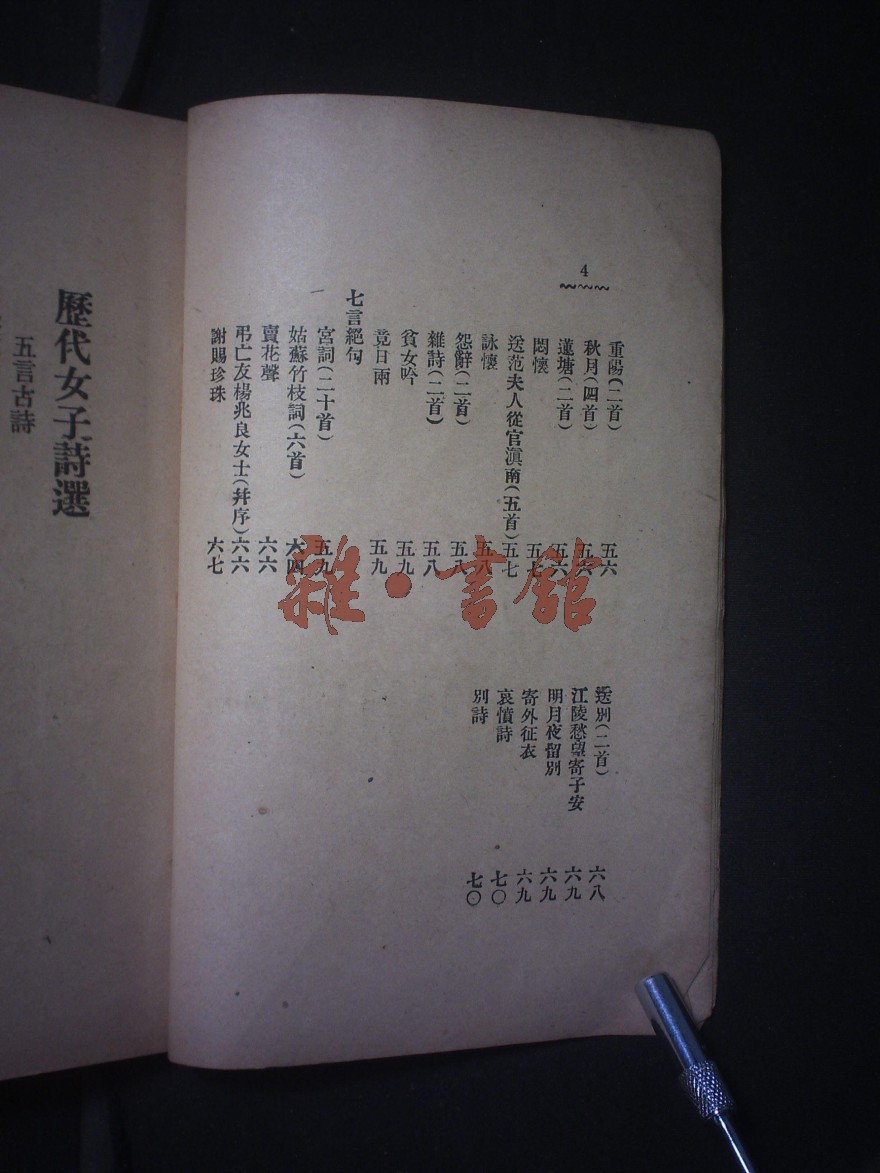 4
重陽(二首) 五六
秋月(四首) 五六
蓮塘(二首) 五六
悶懷 五七
送范夫人從官滇南(五首) 五七
詠懷 五八
怨辭(二首) 五八
雜詩(二首) 五八
貧女吟 五九
竟日雨 五九
七言絕句
宮詞(二十首) 五九
姑蘇竹枝詞(六首) 六四
賣花聲 六六
弔亡友楊兆良女士(幷序) 六六
謝賜珍珠 六七
送別(二首) 六八
江陵愁望寄子安 六九
明月夜留別 六九
寄外征衣 六九
哀憤詩 七〇
別詩 七〇
雜·書館
歷代女子詩選
五言古詩